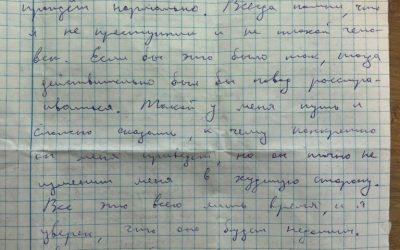 пройдет нормально. Всегда помни, что
я не преступник и не плохой чело-
век. Если бы это было так, тогда
действительно был бы повод расстра-
иваться. Такой у меня путь и
сложно сказать, к чему конкретно
он меня приведет, но он точно не
изменит меня в худшую сторону.
Все это всего лишь время, и я
уверен, что оно будет недолгим.